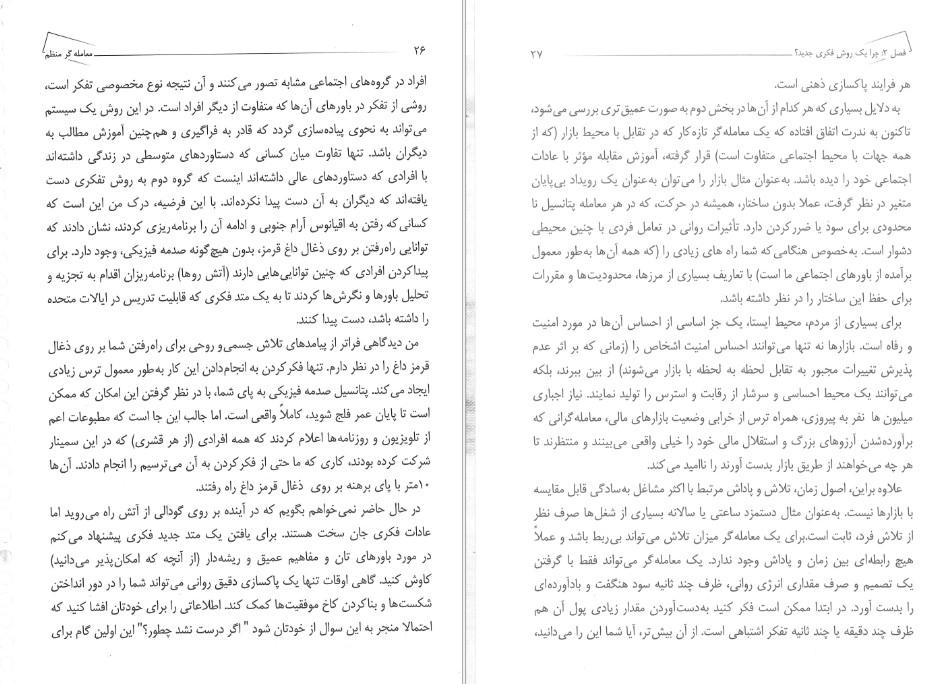 ۲۶
معامله گر منظم
افراد در گروه‌های اجتماعی مشابه تصور می‌کنند و آن نتیجه نوع مخصوصی تفکر است،
روشی از تفکر در باورهای آن‌ها که متفاوت از دیگر افراد است. در این روش یک سیستم
می‌تواند به نحوی پیاده‌سازی گردد که قادر به فراگیری و هم‌چنین آموزش مطالب به
دیگران باشد. تنها تفاوت میان کسانی که دستاوردهای متوسطی در زندگی داشته‌اند
با افرادی که دستاوردهای عالی داشته‌اند اینست که گروه دوم به روش تفکری دست
یافته‌اند که دیگران به آن دست پیدا نکرده‌اند. با این فرضیه، درک من این است که
کسانی‌که رفتن به اقیانوس آرام جنوبی و ادامه آن را برنامه‌ریزی کردند، نشان دادند که
توانایی راه‌رفتن بر روی ذغال داغ قرمز، بدون هیچ‌گونه صدمه فیزیکی، وجود دارد. برای
پیداکردن افرادی که چنین توانایی‌هایی دارند (آتش روها) برنامه‌ریزان اقدام به تجزیه و
تحلیل باورها و نگرش‌ها کردند تا به یک متد فکری که قابلیت تدریس در ایالات متحده
را داشته باشد، دست پیدا کنند.
من دیدگاهی فراتر از پیامدهای تلاش جسمی‌و روحی برای راه‌رفتن شما بر روی ذغال
قرمز داغ را در نظر دارم. تنها فکرکردن به انجام‌دادن این کار به‌طور معمول ترس زیادی
ایجاد می‌کند. پتانسیل صدمه فیزیکی به پای شما، با در نظر گرفتن این امکان که ممکن
است تا پایان عمر فلج شوید، کاملاً واقعی است. اما جالب این جا است که مطبوعات اعم
از تلویزیون و روزنامه‌ها اعلام کردند که همه افرادی (از هر قشری) که در این سمینار
شرکت کرده بودند، کاری که ما حتی از فکرکردن به آن می‌ترسیم را انجام دادند. آن‌ها
۱۰متر با پای برهنه بر روی ذغال قرمز داغ راه رفتند.
در حال حاضر نمی‌خواهم بگویم که در آینده بر روی گودالی از آتش راه می‌روید اما
عادات فکری جان سخت هستند. برای یافتن یک متد جدید فکری پیشنهاد می‌کنم
در مورد باورهای تان و مفاهیم عمیق و ریشه‌دار (از آنچه که امکان‌پذیر می‌دانید)
کاوش کنید. گاهی اوقات تنها یک پاکسازی دقیق روانی می‌تواند شما را در دور انداختن
شکست‌ها و بناکردن کاخ موفقیت‌ها کمک کند. اطلاعاتی را برای خودتان افشا کنید که
احتمالا منجر به این سوال از خودتان شود " اگر درست نشد چطور؟" این اولین گام برای
فصل ۲: چرا یک روش فکری جدید؟
۲۷
هر فرایند پاکسازی ذهنی است.
به دلایل بسیاری که هر کدام از آن‌ها در بخش دوم به صورت عمیق‌تری بررسی می‌شود،
تاکنون به ندرت اتفاق افتاده که یک معامله‌گر تازه‌کار که در تقابل با محیط بازار (که از
همه جهات با محیط اجتماعی متفاوت است) قرار گرفته، آموزش مقابله مؤثر با عادات
اجتماعی خود را دیده باشد. به‌عنوان مثال بازار را می‌توان به‌عنوان یک رویداد بی‌پایان
متغیر در نظر گرفت، عملا بدون ساختار، همیشه در حرکت، که در هر معامله پتانسیل نا
محدودی برای سود یا ضررکردن دارد. تأثیرات روانی در تعامل فردی با چنین محیطی
دشوار است. به‌خصوص هنگامی‌که شما راه های زیادی را (که همه آن‌ها به‌طور معمول
برآمده از باورهای اجتماعی ما است) با تعاریف بسیاری از مرزها، محدودیت‌ها و مقررات
برای حفظ این ساختار را در نظر داشته باشد.
برای بسیاری از مردم، محیط ایستا، یک جز اساسی از احساس آن‌ها در مورد امنیت
و رفاه است. بازارها نه تنها می‌توانند احساس امنیت اشخاص را (زمانی که بر اثر عدم
پذیرش تغییرات مجبور به تقابل لحظه به لحظه با بازار می‌شوند) از بین ببرند، بلکه
می‌توانند یک محیط احساسی و سرشار از رقابت و استرس را تولید نمایند. نیاز اجباری
میلیون ها نفر به پیروزی، همراه ترس از خرابی وضعیت بازارهای مالی، معامله‌گرانی که
برآورده‌شدن آرزوهای بزرگ و استقلال مالی خود را خیلی واقعی می‌بینند و منتظرند تا
هر چه می‌خواهند از طریق بازار بدست آورند را ناامید می‌کند.
علاوه براین، اصول زمان، تلاش و پاداش مرتبط با اکثر مشاغل به‌سادگی قابل مقایسه
با بازارها نیست. به‌عنوان مثال دستمزد ساعتی یا سالانه بسیاری از شغل‌ها صرف نظر
از تلاش فرد، ثابت است.برای یک معامله‌گر میزان تلاش می‌تواند بی‌ربط باشد و عملاً
هیچ رابطه‌ای بین زمان و پاداش وجود ندارد. یک معامله‌گر می‌تواند فقط با گرفتن
یک تصمیم و صرف مقداری انرژی روانی، ظرف چند ثانیه سود هنگفت و بادآورده‌ای
را بدست آورد. در ابتدا ممکن است فکر کنید به‌دست‌آوردن مقدار زیادی پول آن هم
ظرف چند دقیقه یا چند ثانیه تفکر اشتباهی است. از آن بیش‌تر، آیا شما این را می‌دانید،